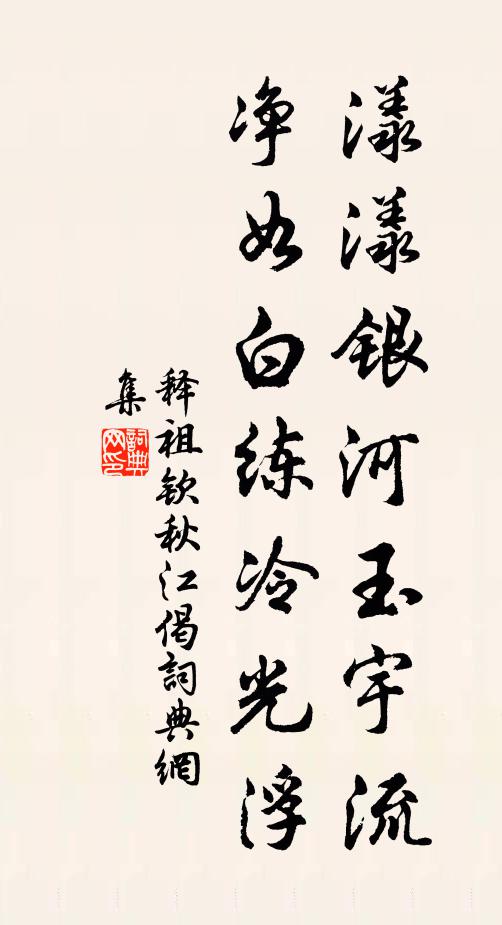 漾漾银河玉宇流
净如白练冷光浮
释祖钦秋江偈詞典網
集
詞典
网印